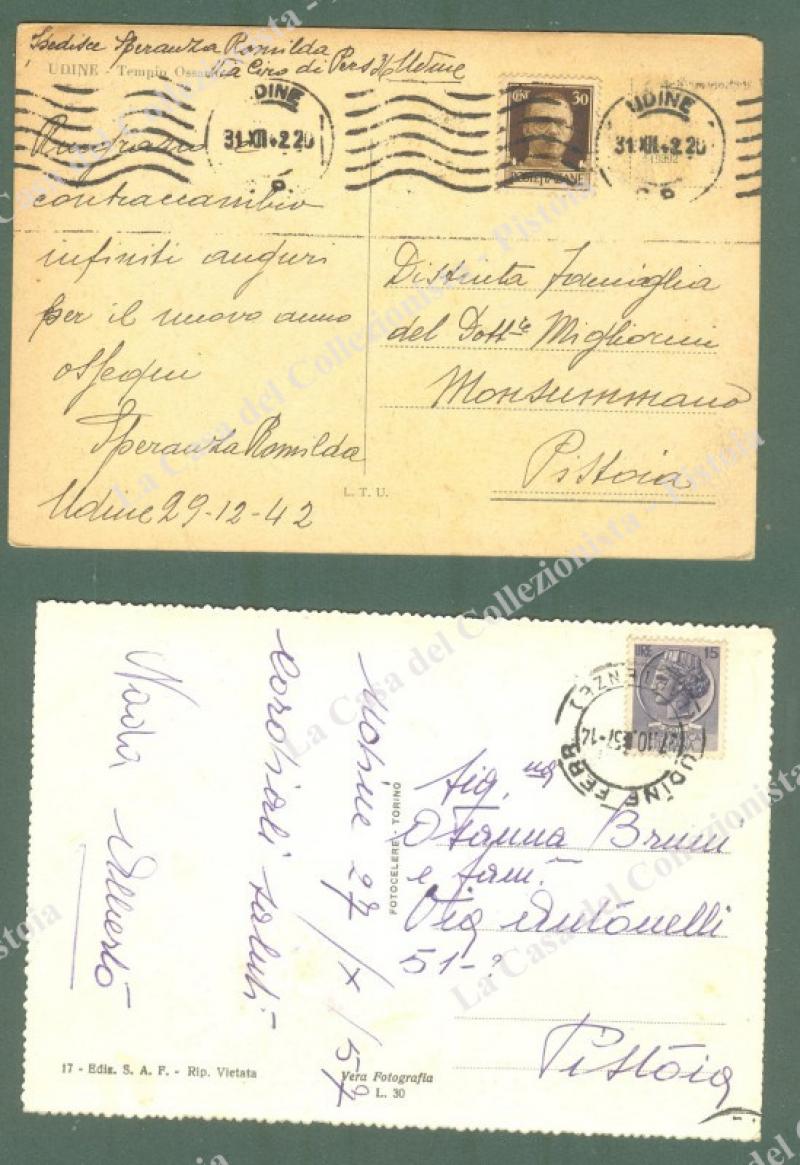 Spedisce Speranza Romilda
Via Ciro di Pers Udine
UDINE - Tempio Ossa
UDINE
31.XII.42.20
CENT 30
POSTE ITALIANE
UDINE
31.XII.42.20
Ringrazio e
contraccambio
infiniti auguri
per il nuovo anno
ossequi
Speranza Romilda
Udine 29-12-42
Distinta Famiglia
del Dott.re Migliorini
Monsummano
Pistoia
L. T. U.
LIRE 15
UDINE FERR
27.10.57-14
Udine 27/X/57
Cordiali saluti
Nadia Alberto
FOTOCELERE TORINO
Sig.na
Osanna Bruni
e fam.
Via Antonelli
51-
Pistoia
17 - Ediz. S. A. F. - Rip. Vietata
Vera Fotografia
L. 30
La Casa del Collezionista - Pistoia